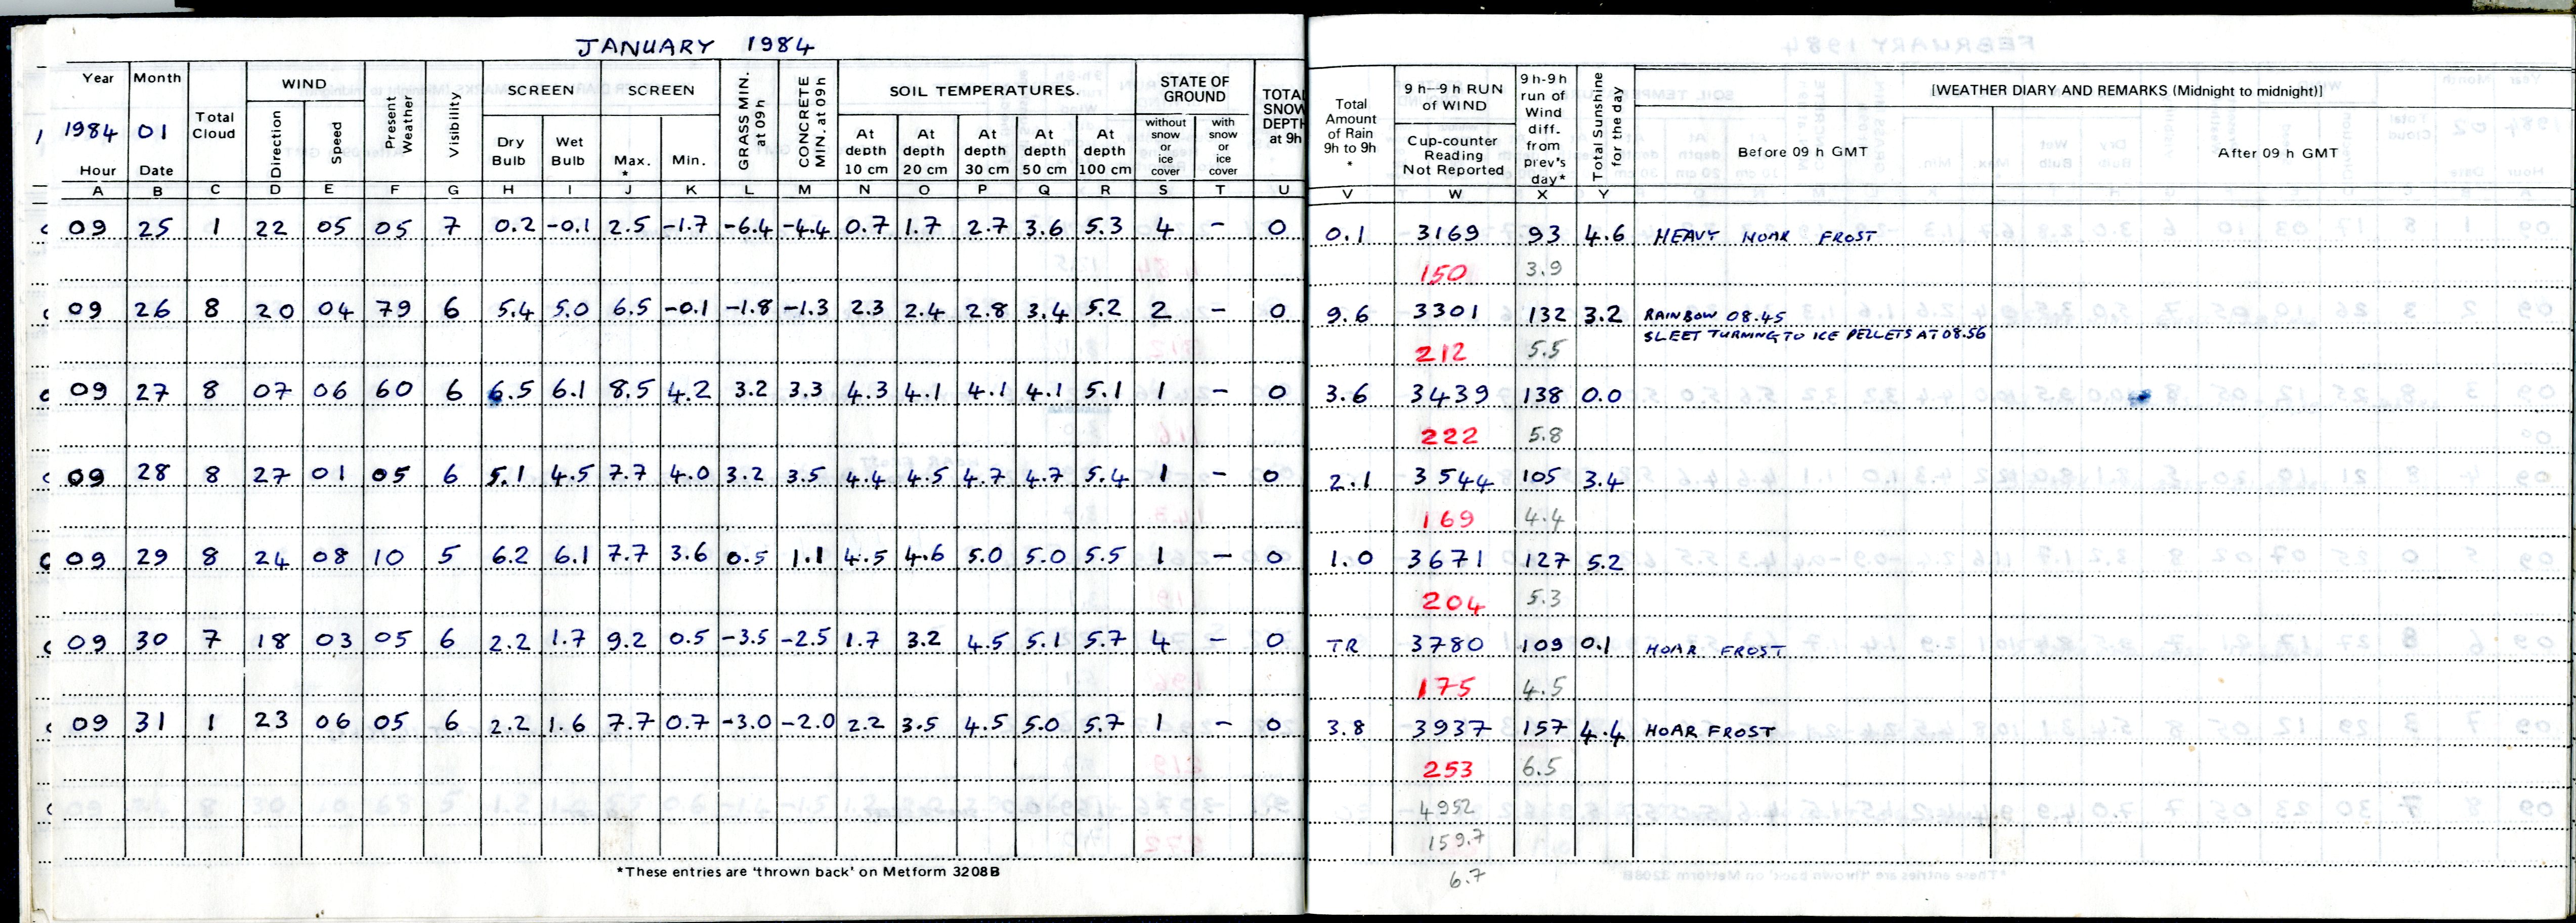 JANUARY 1984
Year Month Total Cloud WIND Present Weather Visibility SCREEN SCREEN GRASS MIN. at 09h CONCRETE MIN. at 09h SOIL TEMPERATURES. STATE OF GROUND TOTAL SNOW DEPTH at 9h Total Amount of Rain 9h to 9h * 9h–9h RUN of WIND 9h-9h run of Wind diff. from prev's day* Total Sunshine for the day [WEATHER DIARY AND REMARKS (Midnight to midnight)]
1984 01 Direction Speed Dry Bulb Wet Bulb Max. * Min. At depth 10 cm At depth 20 cm At depth 30 cm At depth 50 cm At depth 100 cm without snow or ice cover with snow or ice cover Cup-counter Reading Not Reported Before 09 h GMT After 09 h GMT
Hour Date
A B C D E F G H I J K L M N O P Q R S T U V W X Y
09 25 1 22 05 05 7 0.2 -0.1 2.5 -1.7 -6.4 -4.4 0.7 1.7 2.7 3.6 5.3 4 - 0 0.1 3169 93 4.6 HEAVY HOAR FROST
150 3.9
09 26 8 20 04 79 6 5.4 5.0 6.5 -0.1 -1.8 -1.3 2.3 2.4 2.8 3.4 5.2 2 - 0 9.6 3301 132 3.2 RAINBOW 08.45
SLEET TURNING TO ICE PELLETS AT 08.56
212 5.5
09 27 8 07 06 60 6 6.5 6.1 8.5 4.2 3.2 3.3 4.3 4.1 4.1 4.1 5.1 1 - 0 3.6 3439 138 0.0
222 5.8
09 28 8 27 01 05 6 5.1 4.5 7.7 4.0 3.2 3.5 4.4 4.5 4.7 4.7 5.4 1 - 0 2.1 3544 105 3.4
169 4.4
09 29 8 24 08 10 5 6.2 6.1 7.7 3.6 0.5 1.1 4.5 4.6 5.0 5.0 5.5 1 - 0 1.0 3671 127 5.2
204 5.3
09 30 7 18 03 05 6 2.2 1.7 9.2 0.5 -3.5 -2.5 1.7 3.2 4.5 5.1 5.7 4 - 0 TR 3780 109 0.1 HOAR FROST
175 4.5
09 31 1 23 06 05 6 2.2 1.6 7.7 0.7 -3.0 -2.0 2.2 3.5 4.5 5.0 5.7 1 - 0 3.8 3937 157 4.4 HOAR FROST
253 6.5
4952
159.7
*These entries are 'thrown back' on Metform 3208B
6.7